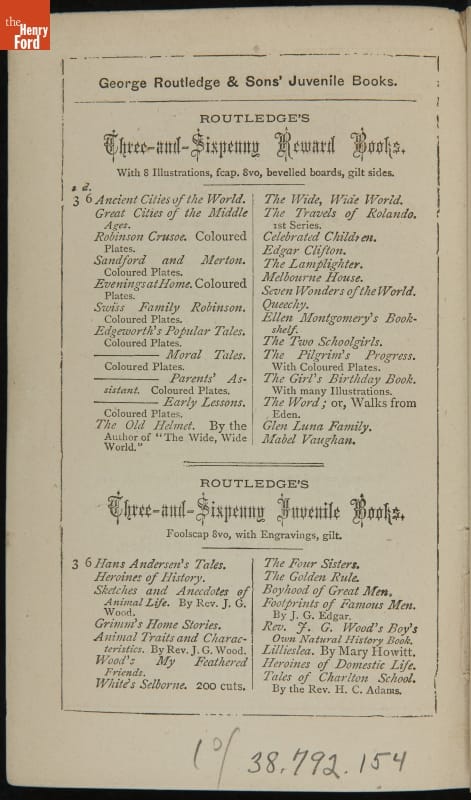 the
Henry
Ford
George Routledge & Sons' Juvenile Books.
ROUTLEDGE'S
Three-and-Sixpenny Reward Books.
With 8 Illustrations, fcap. 8vo, bevelled boards, gilt sides.
s. d.
3 6 Ancient Cities of the World.
Great Cities of the Middle
Ages.
Robinson Crusoe. Coloured
Plates.
Sandford and Merton.
Coloured Plates.
Evenings at Home. Coloured
Plates.
Swiss Family Robinson.
Coloured Plates.
Edgeworth's Popular Tales.
Coloured Plates.
——— Moral Tales.
Coloured Plates.
——— Parents' As-
sistant. Coloured Plates.
——— Early Lessons.
Coloured Plates.
The Old Helmet. By the
Author of "The Wide, Wide
World."
The Wide, Wide World.
The Travels of Rolando.
1st Series.
Celebrated Children.
Edgar Clifton.
The Lamplighter.
Melbourne House.
Seven Wonders of the World.
Queechy.
Ellen Montgomery's Book-
shelf.
The Two Schoolgirls.
The Pilgrim's Progress.
With Coloured Plates.
The Girl's Birthday Book.
With many Illustrations.
The Word; or, Walks from
Eden.
Glen Luna Family.
Mabel Vaughan.
ROUTLEDGE'S
Three-and-Sixpenny Juvenile Books.
Foolscap 8vo, with Engravings, gilt.
3 6 Hans Andersen's Tales.
Heroines of History.
Sketches and Anecdotes of
Animal Life. By Rev. J. G.
Wood.
Grimm's Home Stories.
Animal Traits and Charac-
teristics. By Rev. J. G. Wood.
Wood's My Feathered
Friends.
White's Selborne. 200 cuts.
The Four Sisters.
The Golden Rule.
Boyhood of Great Men.
Footprints of Famous Men.
By J. G. Edgar.
Rev. J. G. Wood's Boy's
Own Natural History Book.
Lillieslea. By Mary Howitt.
Heroines of Domestic Life.
Tales of Charlton School.
By the Rev. H. C. Adams.
10/ 38.792.154